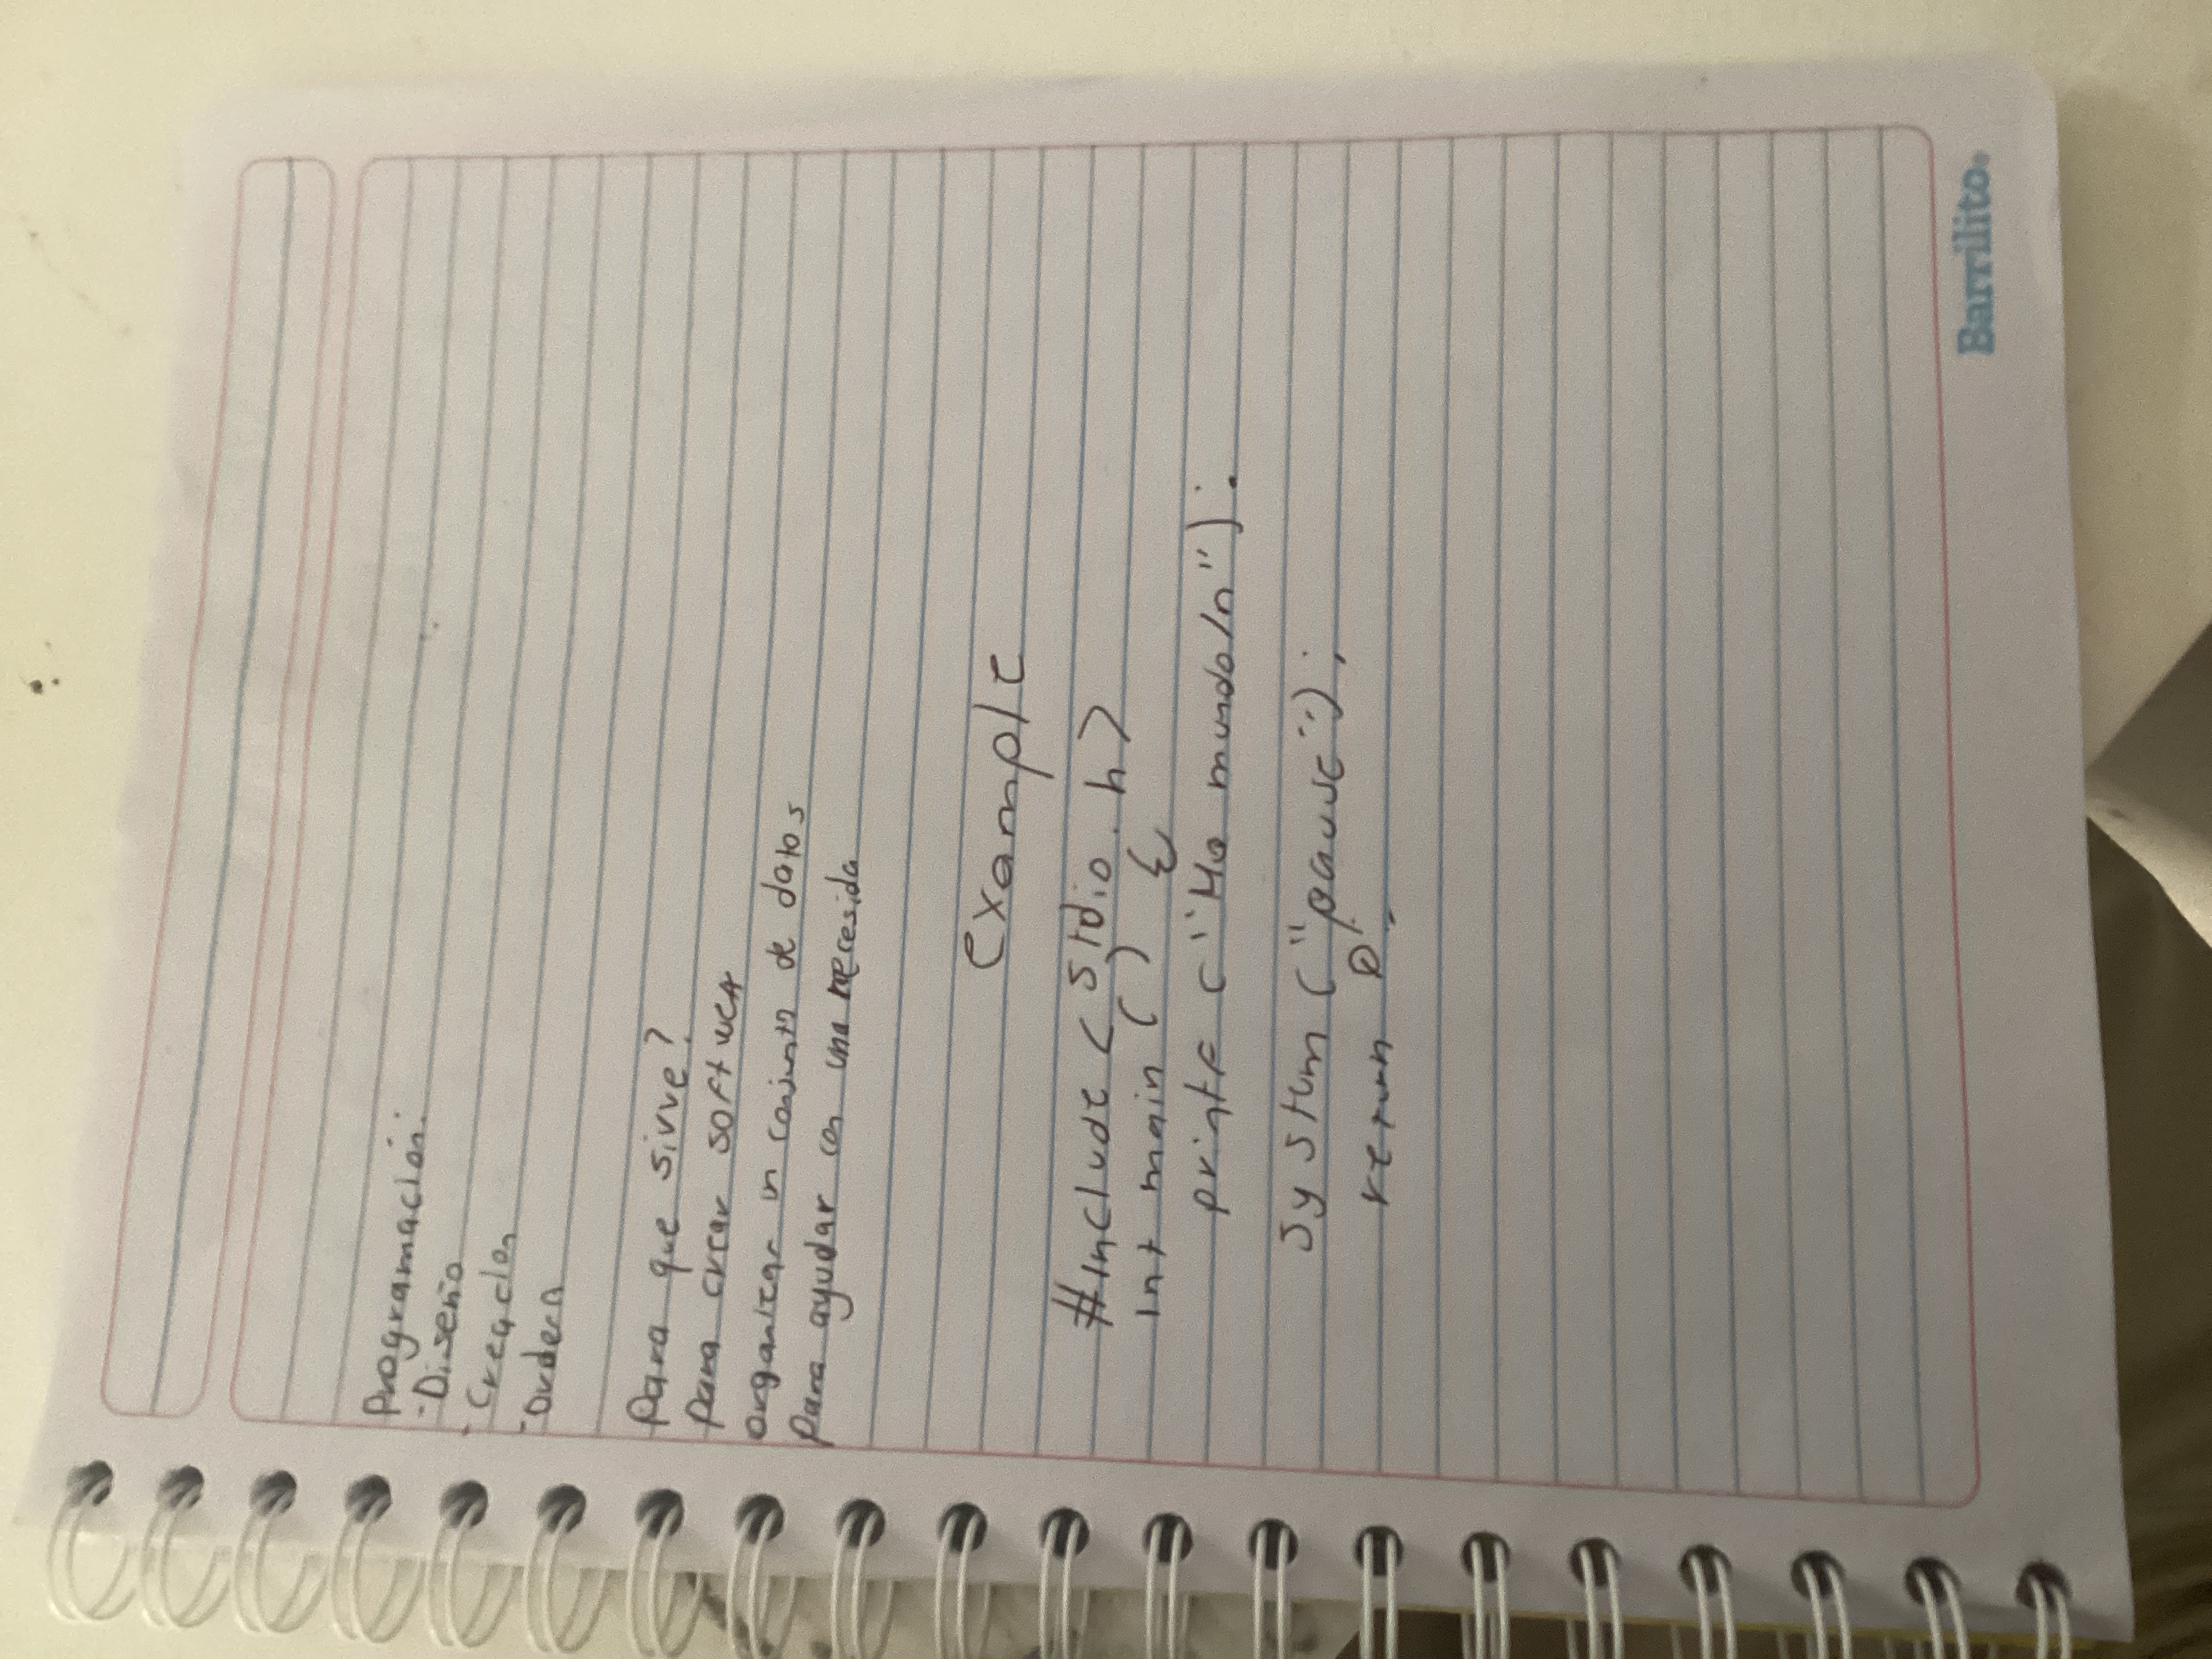 Programación:
-Diseño
-Creacion
-Ordern
Para que sirve?
Para crear softwer
organizar un conjunto de datos
Para ayudar con una necesida
Example
#include <stdio.h>
int main () {
printf ("Ho mundo\n");
system ("pause");
return 0;
Barrilito